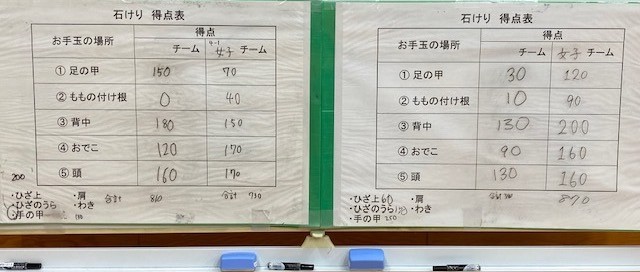 石けり 得点表
お手玉の場所 得点
チーム 4-1 女子 チーム
① 足の甲 150 70
② ももの付け根 0 40
③ 背中 180 150
④ おでこ 120 170
⑤ 頭 160 170
200
・ひざ上 ・肩 合計 合計 730
・ひざのうら ・わき
・手の甲
石けり 得点表
お手玉の場所 得点
チーム 女子 チーム
① 足の甲 30 120
② ももの付け根 10 90
③ 背中 130 200
④ おでこ 90 160
⑤ 頭 130 160
・ひざ上 60 ・肩 合計
・ひざのうら ・わき
・手の甲 250